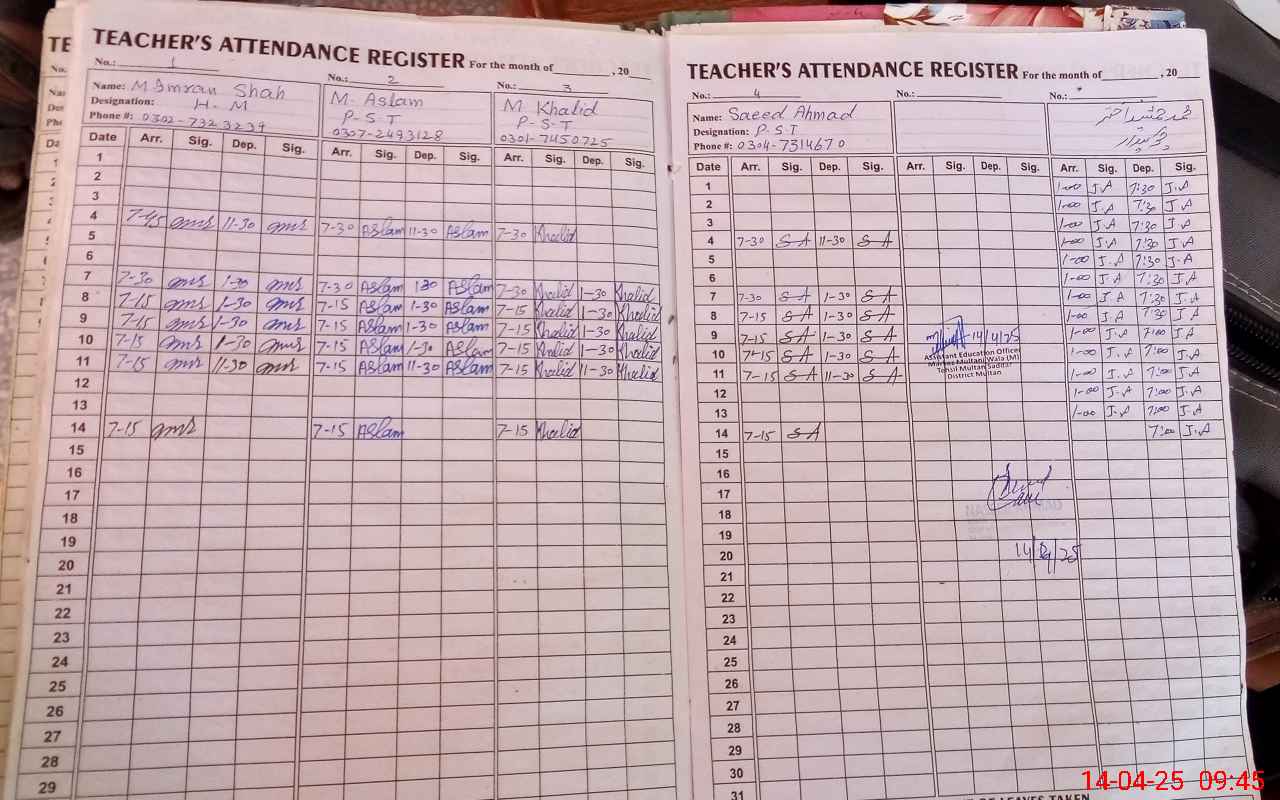 TEACHER'S ATTENDANCE REGISTER For the month of , 20
No.: 1 No.: 2 No.: 3
Name: M Imran Shah M. Aslam M. Khalid
Designation: H. M P-S-T P-S-T
Phone #: 0302-7323239 0307-2493128 0301-7450725
Date Arr. Sig. Dep. Sig. Arr. Sig. Dep. Sig. Arr. Sig. Dep. Sig.
1
2
3
4 7-45 11-30 7-30 Aslam 11-30 Aslam 7-30 Khalid
5
6
7 7-30 1-30 7-30 Aslam 1-30 Aslam 7-30 Khalid 1-30 Khalid
8 7-15 1-30 7-15 Aslam 1-30 Aslam 7-15 Khalid 1-30 Khalid
9 7-15 1-30 7-15 Aslam 1-30 Aslam 7-15 Khalid 1-30 Khalid
10 7-15 1-30 7-15 Aslam 1-30 Aslam 7-15 Khalid 1-30 Khalid
11 7-15 11-30 7-15 Aslam 11-30 Aslam 7-15 Khalid 11-30 Khalid
12
13
14 7-15 7-15 Aslam 7-15 Khalid
15
16
17
18
19
20
21
22
23
24
25
26
27
28
29
TEACHER'S ATTENDANCE REGISTER For the month of , 20
No.: 4 No.: No.:
Name: Saeed Ahmad
Designation: P-S-T چوکیدار
Phone #: 0304-7314670
Date Arr. Sig. Dep. Sig. Arr. Sig. Dep. Sig. Arr. Sig. Dep. Sig.
1 1-00 J.A 7:30 J.A
2 1-00 J.A 7:30 J.A
3 1-00 J.A 7:30 J.A
4 7-30 S-A 11-30 S-A 1-00 J.A 7:30 J.A
5 1-00 J.A 7:30 J.A
6 1-00 J.A 7:30 J.A
7 7-30 S-A 1-30 S-A 1-00 J.A 7:30 J.A
8 7-15 S-A 1-30 S-A 1-00 J.A 7:30 J.A
9 7-15 S-A 1-30 S-A 14/4/25 1-00 J.A 7:00 J.A
10 7-15 S-A 1-30 S-A 1-00 J.A 7:00 J.A
Assistant Education Officer
Markaz Multani Wala (M)
Tehsil Multan Saddar
District Multan
11 7-15 S-A 11-30 S-A 1-00 J.A 7:00 J.A
12 1-00 J.A 7:00 J.A
13 1-00 J.A 7:00 J.A
14 7-15 S-A 7:00 J.A
15
16
17
18
19
20 14/4/25
21
22
23
24
25
26
27
28
29
30
31
OF LEAVES TAKEN
14-04-25 09:45